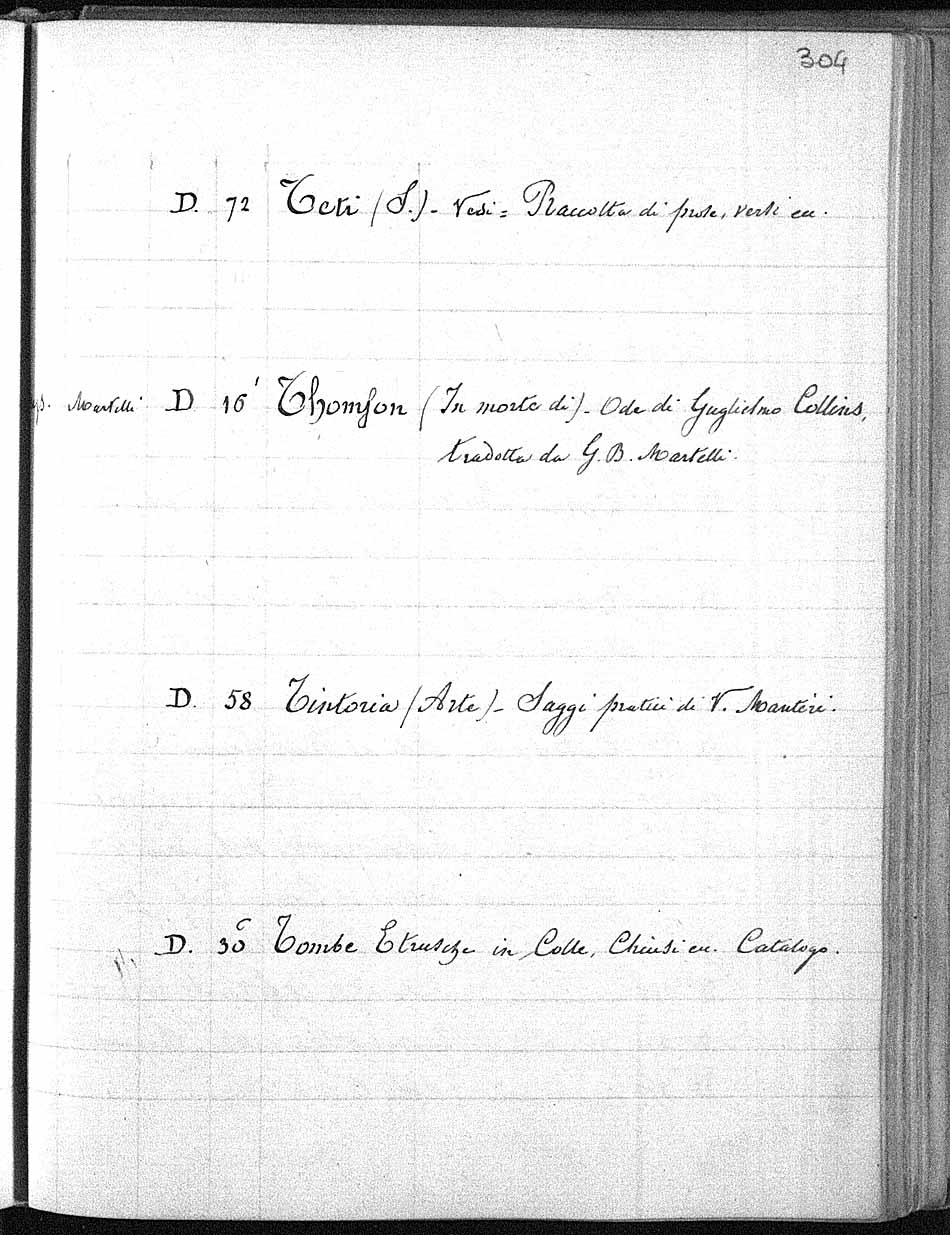 304
D. 72 Teti (S.) - Vedi = Raccolta di prose, versi ec.
Martelli D 16' Thomson (In morte di) - Ode di Guglielmo Collins,
tradotta da G. B. Martelli.
D. 58 Tintoria (Arte) - Saggi pratici di V. Mantéri.
D. 30 c Tombe Etrusche in Colle, Chiusi ec. Catalogo.